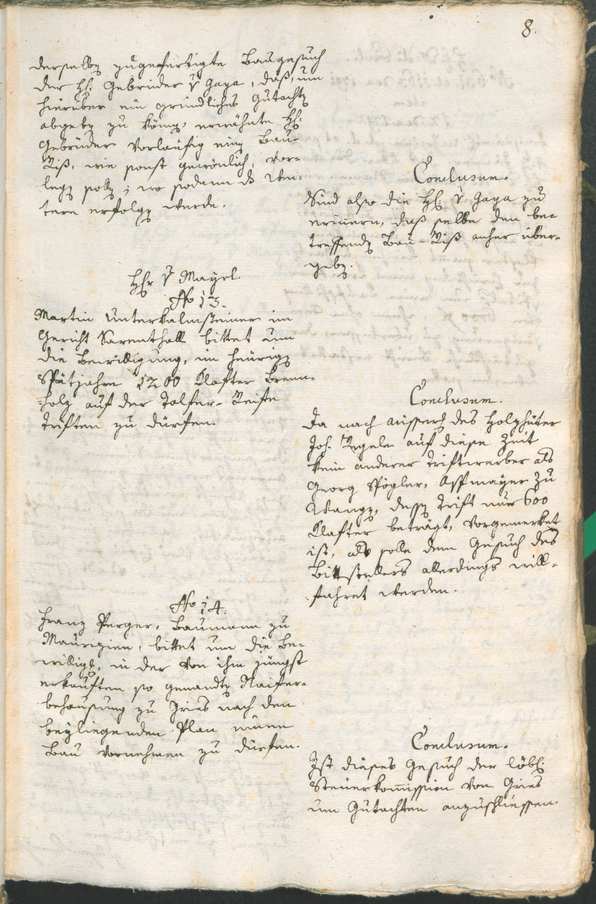 8.
derselben zugefertigte Baugesuch
der H. Gebrüder v Gaga, daß, um
hierüber ein gründliches Gutachten
abgeben zu können, erwähnte H.
Gebrüder vorläufig einen Bau-
Riß, wie sonst gewönlich, vor-
legen sollen; wo sodann das Wei-
tere erfolgen werde.
Conclusum.
Sind also die H. v Gaga zu
erinnern, daß selbe den be-
treffenden Bau-Riß anher über-
geben.
Hhr v Mayrl.
No 13.
Martin Unterkalmsteiner im
Gericht Sarenthall bittet um
die Bewilligung, im heurigen
Spätjahre 1200 Klafter Brenn-
holz auf der Talfer-Reife
triften zu dürfen.
Conclusum.
Da nach Aussag des Holzhüter
Joh. Regele auf diese Zeit
kein anderer Triftwerber als
Georg Vögler, Assmayer zu
Wangen, dessen Trift nur 600
Klafter beträgt, vorgemerket
ist, als solle dem Gesuch des
Bittstellers allerdings will-
fahret werden.
No 14.
Franz Perger, Baumann zu
Maurizien, bittet um die Be-
willigung, in der von ihm jüngst
erkauften so genandten Kaiser-
behausung zu Gries nach dem
beyliegenden Plan einen
Bau vornehmen zu dürfen.
Conclusum.
Ist dieses Gesuch der löbl.
Steuerkommission von Gries
um Gutachten anzuschliessen.